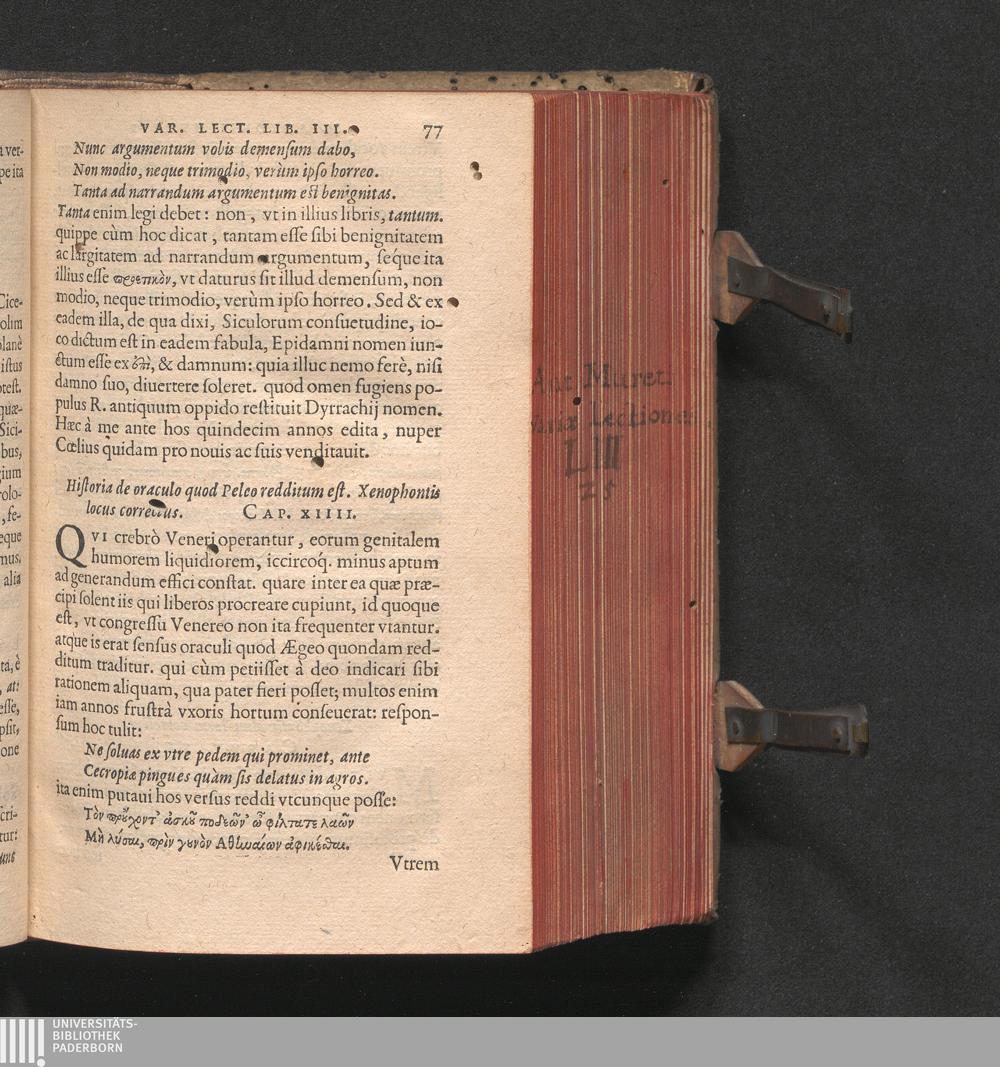 VAR. LECT. LIB. III. 77
Nunc argumentum vobis demenſum dabo,
Non modio, neque trimodio, verùm ipſo horreo.
Tanta ad narrandum argumentum eſt benignitas.
Tanta enim legi debet: non, vt in illius libris, tantum.
quippe cùm hoc dicat, tantam eſſe ſibi benignitatem
ac largitatem ad narrandum argumentum, ſeque ita
illius eſſe vt daturus ſit illud demenſum, non
modio, neque trimodio, verùm ipſo horreo. Sed & ex
eadem illa, de qua dixi, Siculorum conſuetudine, io-
co dictum eſt in eadem fabula, Epidamni nomen iun-
ctum eſſe ex ἐπὶ, & damnum: quia illuc nemo ferè, niſi
damno ſuo, diuertere ſoleret. quod omen fugiens po-
pulus R. antiquum oppido reſtituit Dyrrachij nomen.
Hæc à me ante hos quindecim annos edita, nuper
Cœlius quidam pro nouis ac ſuis venditauit.
Hiſtoria de oraculo quod Peleo redditum eſt. Xenophontis
locus correctus. CAP. XIIII.
QVI crebrò Veneri operantur, eorum genitalem
humorem liquidiorem, iccircoq. minus aptum
ad generandum effici conſtat. quare inter ea quæ præ-
cipi ſolent iis qui liberos procreare cupiunt, id quoque
eſt, vt congreſſu Venereo non ita frequenter vtantur.
atque is erat ſenſus oraculi quod Ægeo quondam red-
ditum traditur. qui cùm petiiſſet à deo indicari ſibi
rationem aliquam, qua pater fieri poſſet; multos enim
iam annos fruſtrà vxoris hortum conſeuerat: reſpon-
ſum hoc tulit:
Ne ſoluas ex vtre pedem qui prominet, ante
Cecropiæ pingues quàm ſis delatus in agros.
ita enim putaui hos verſus reddi vtcunque poſſe:
Τὸν προὔχοντ' ἀσκοῦ ποδεῶν' ὦ φίλτατε λαῶν
Μὴ λύσαι, πρὶν γουνὸν Ἀθηναίων ἀφικέσθαι.
Vtrem
Ant. Muret.
Variæ Lectiones
LIII
25
UNIVERSITÄTS-
BIBLIOTHEK
PADERBORN